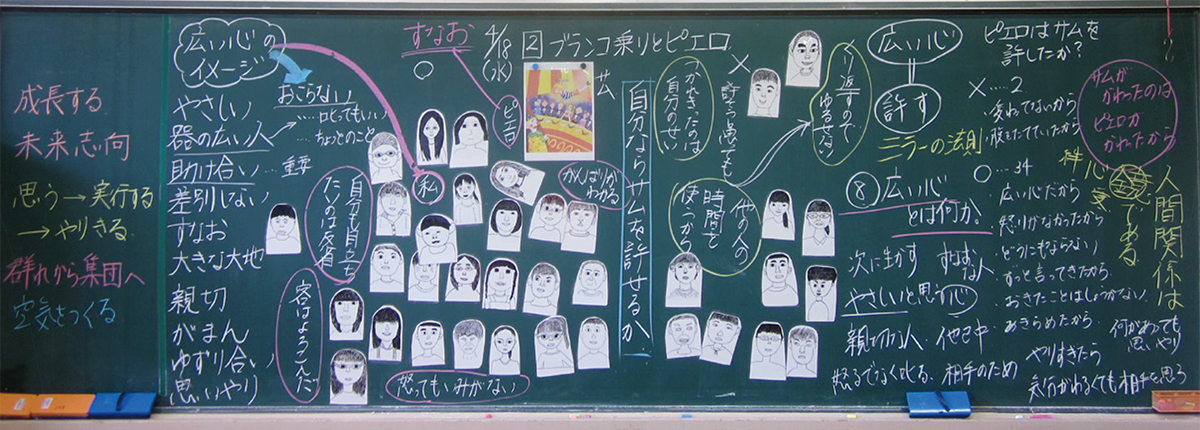 成長する
未来志向
思う→実行する
→やりきる
群れから集団へ
空気をつくる
広い心の
イメージ
やさしい
器の広い人
助け合い
差別しない
すなお
大きな大地
親切
がまん
ゆずり合い
思いやり
おこらない
ちょっとのこと
重要
すなお
4/18
(水)
2 ブランコ乗りとピエロ
サム
ピエロ
私
自分も目立ち
たいのは客よろこんだ
がんばりが
わかる
怒ってもいみがない
自分ならサムを許せるか
×
つかれきったのは
自分のせい
許そう高ても
くり返すので
ゆるせない
他の人の
時間を
使うから
広い心
許す
ミラーの法則
⑧広い心
とは何か
次に生かす
すなおな人
やさしいと思う心
親切な人
他己中
怒るでなく叱る
相手のため
ピエロはサムを
許したか?
×……2
変わってないから
腹を立てていたから
○……34
広い心だから
怒りがなかったから
どうにもならない
ずっと言ってきたから
おきたことはしょうがない
あきらめたから
サムが
かわったのは
ピエロが
かわったから
人間関係は
である
何がわっても
思いやり
やりすぎたら
気分がわるくても相手を思う